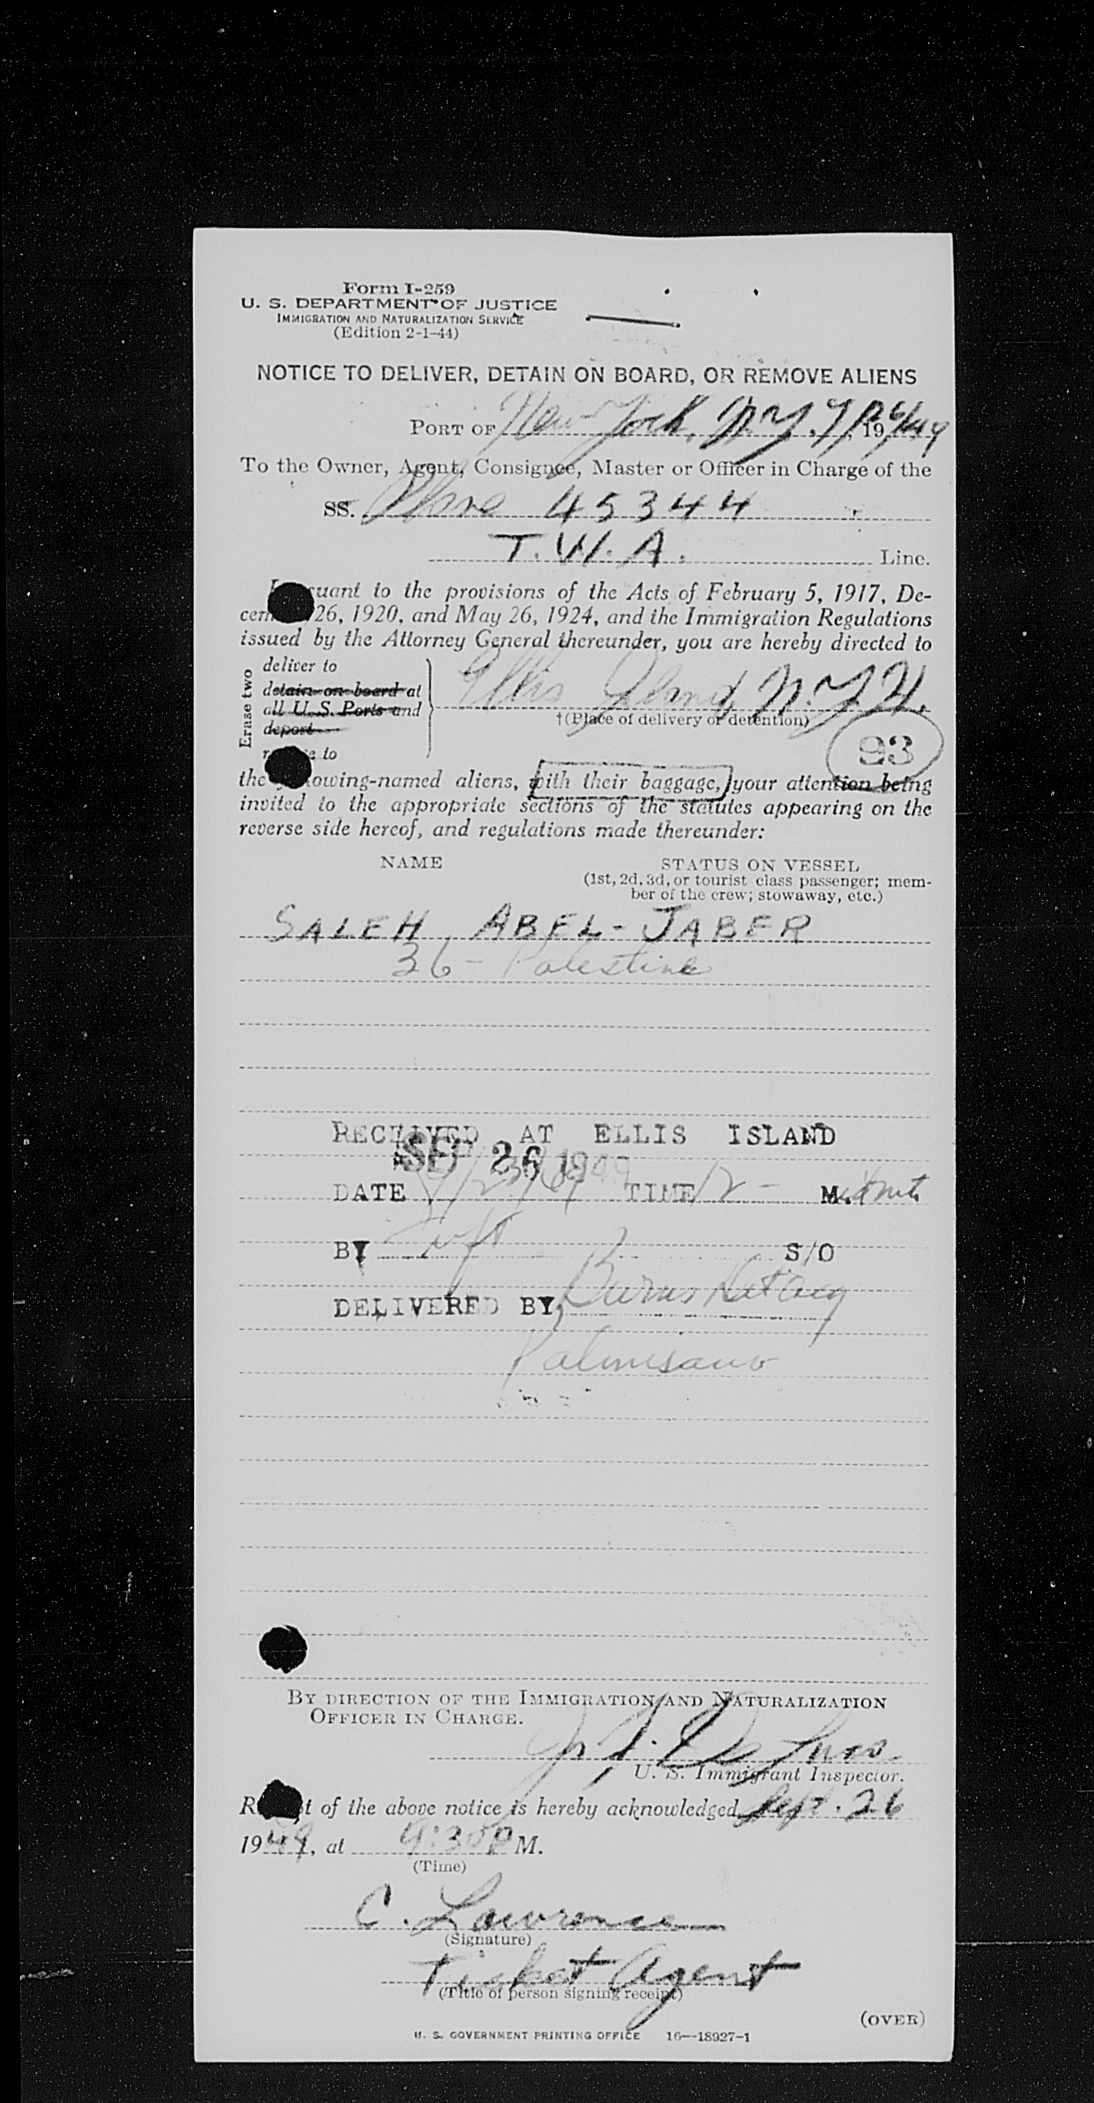 Form I-259
U. S. DEPARTMENT OF JUSTICE
IMMIGRATION AND NATURALIZATION SERVICE
(Edition 2-1-44)
NOTICE TO DELIVER, DETAIN ON BOARD, OR REMOVE ALIENS
PORT OF New York, N.Y. 9/26/49 19
To the Owner, Agent, Consignee, Master or Officer in Charge of the
SS. Plane 45344
T.W.A. Line.
Pursuant to the provisions of the Acts of February 5, 1917, De-
cember 26, 1920, and May 26, 1924, and the Immigration Regulations
issued by the Attorney General thereunder, you are hereby directed to
Erase two
deliver to
detain on board at
all U. S. Ports and
deport
remove to
Ellis Island, N.Y.H.
†(Place of delivery or detention)
93
the following-named aliens, with their baggage, your attention being
invited to the appropriate sections of the statutes appearing on the
reverse side hereof, and regulations made thereunder:
NAME
STATUS ON VESSEL
(1st, 2d, 3d, or tourist class passenger; mem-
ber of the crew; stowaway, etc.)
SALEH, ABEL-JABER
36 - Palestine
RECEIVED AT ELLIS ISLAND
SEP 26 1949
DATE TIME 12 - M.
BY S/O
DELIVERED BY, Burns Det Agy
Palmisano
BY DIRECTION OF THE IMMIGRATION AND NATURALIZATION
OFFICER IN CHARGE.
U. S. Immigrant Inspector.
Receipt of the above notice is hereby acknowledged, Sept. 26
1949, at 9:30 P M.
(Time)
C. Lawrence
(Signature)
Ticket Agent
(Title of person signing receipt)
(OVER)
U. S. GOVERNMENT PRINTING OFFICE 16—18927-1